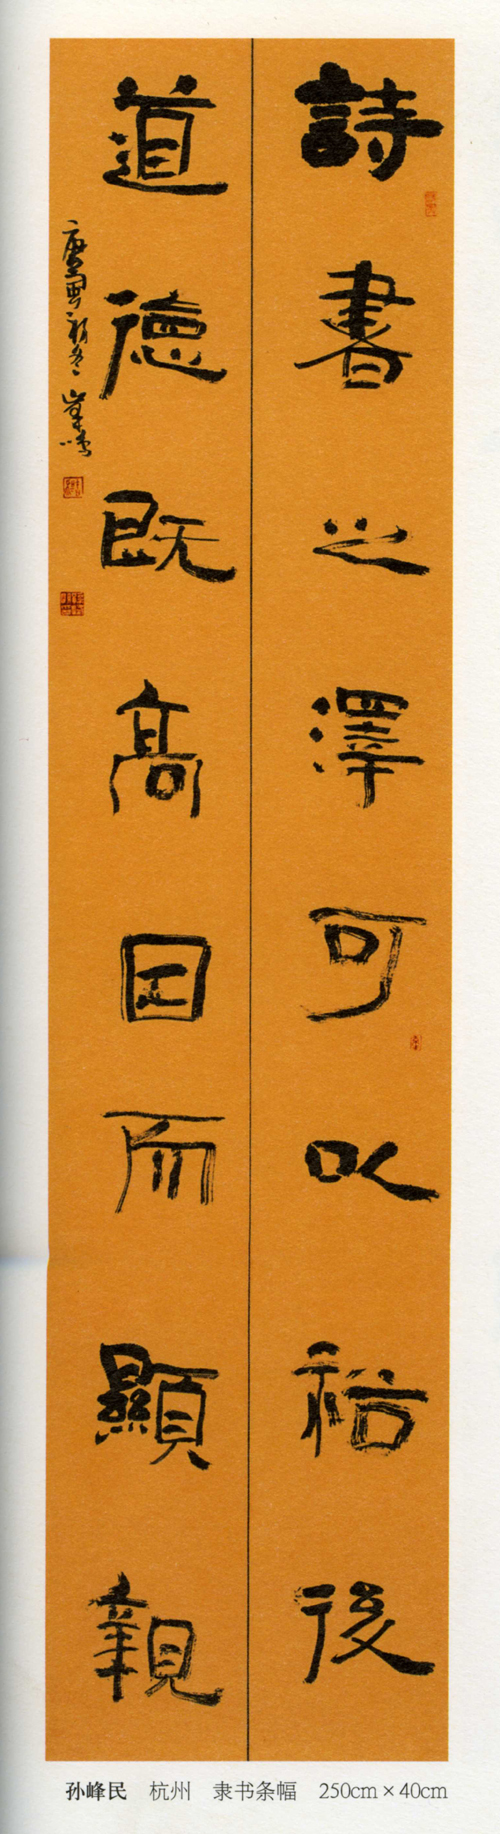 詩書之澤可以裕後
道德既高因而顯親
庚寅初冬 峯民
孙峰民 杭州 隶书条幅 250cm×40cm